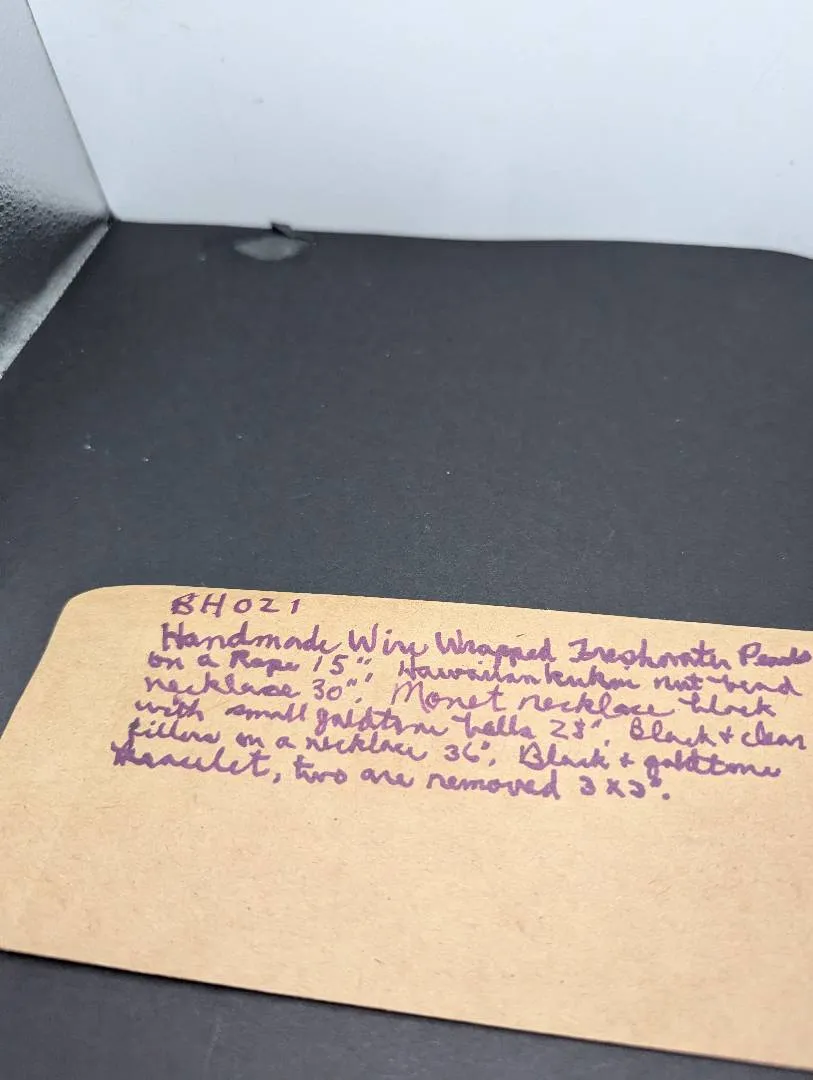 BH021
Handmade Wire Wrapped Freshwater Pearls
on a Rope 15". Hawaiian kukui nut bead
necklace 30". Monet necklace black
with small goldtone balls 28". Black + clear
fillers on a necklace 36". Black + goldtone
bracelet, two are removed 3 x 3".